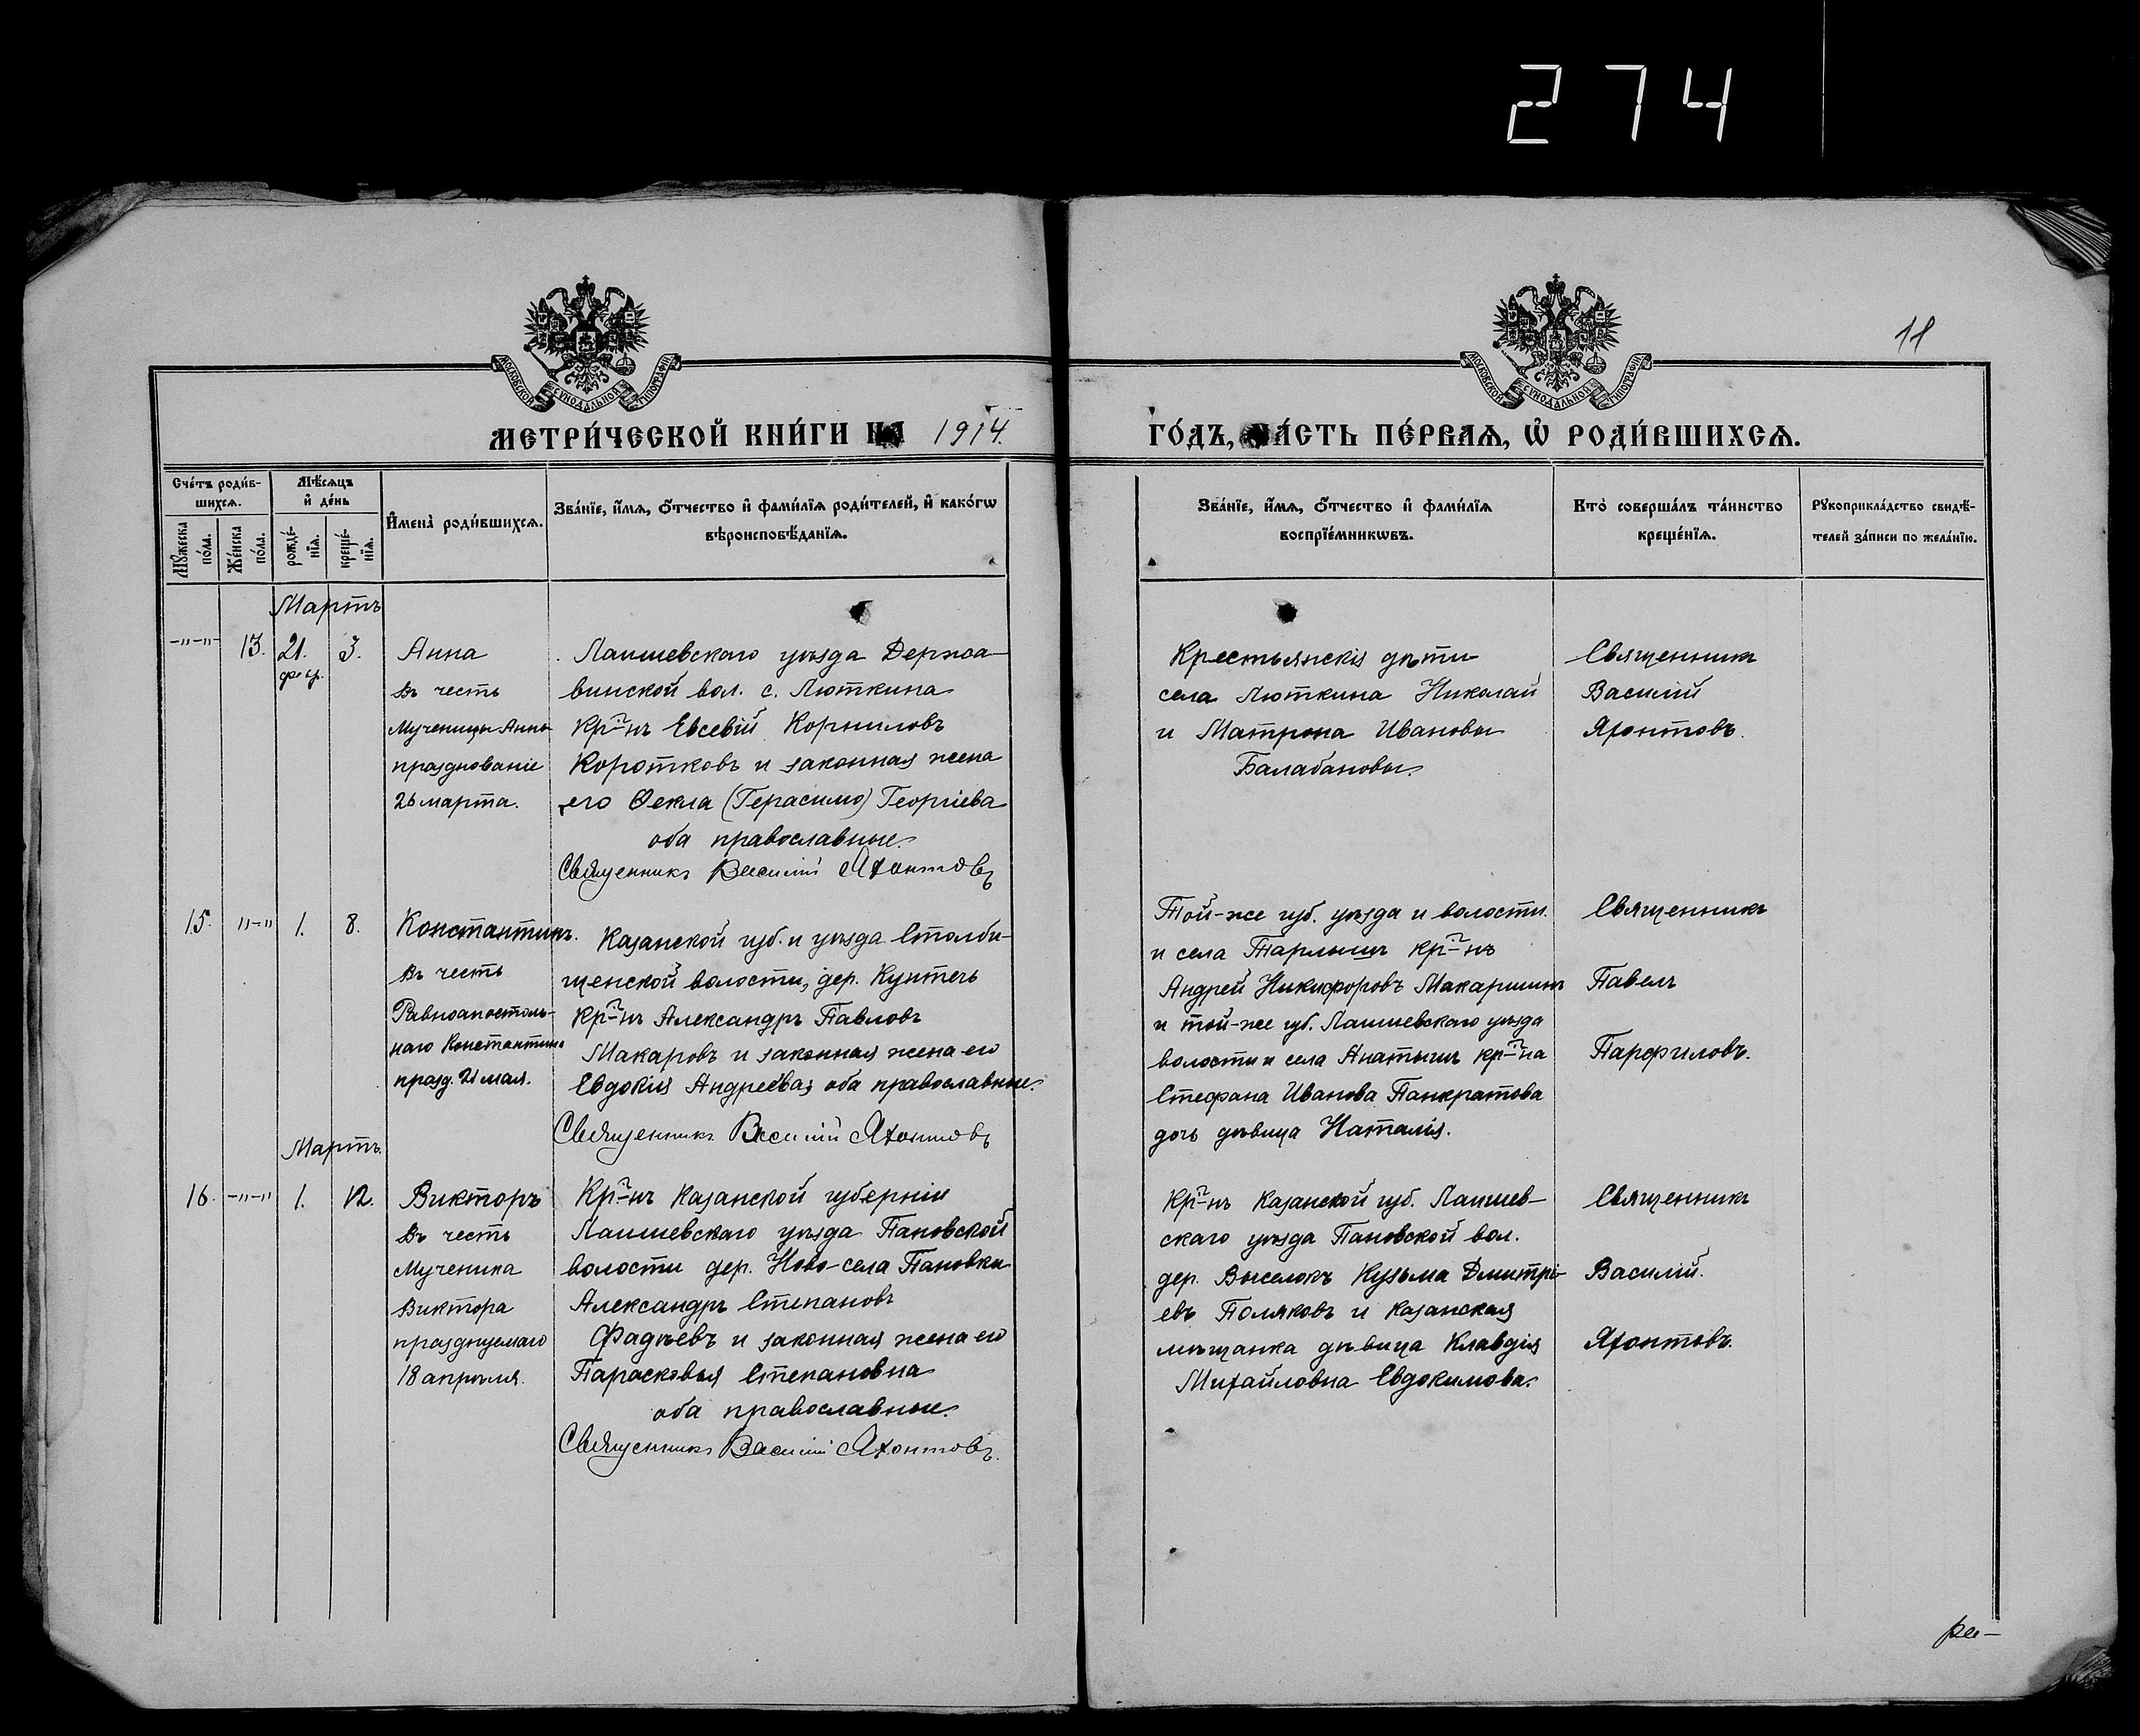 274
11
МОСКОВСКОЙ СѴНОДАЛЬНОЙ ТИПОГРАФІИ
МОСКОВСКОЙ СѴНОДАЛЬНОЙ ТИПОГРАФІИ
МЕТРИ́ЧЕСКОЙ КНИ́ГИ НА 1914.
ГО́ДЪ, ЧА́СТЬ ПЕ́РВАѦ, Ѡ҆ РОДИ́ВШИХСѦ.
Сче́тъ роди́в-
шихсѧ.
Мꙋ́жеска по́ла.
Же́нска по́ла.
Мѣ́сѧцъ
и҆ де́нь
рожде́-нїѧ.
креще́-нїѧ.
И҆мена̀ роди́вшихсѧ.
Зва́нїе, и҆́мѧ, ѻ҆́тчество и҆ фами́лїѧ роди́телей, и҆ како́гѡ
вѣроисповѣ́данїѧ.
Зва́нїе, и҆́мѧ, ѻ҆́тчество и҆ фами́лїѧ
воспрїе́мникѡвъ.
Кто̀ соверша́лъ та́инство
креще́нїѧ.
Рꙋкоприкла́дство свидѣ́-
телей за́писи по жела́нїю.
Мартъ
-"-"- 13. 21. фср. 3.
Анна
въ честь
Мученицы Анны
празднованіе
26 марта.
Лаишевскаго уѣзда Держа-
винской вол. с. Люткина
Кр-нъ Евсевій Корниловъ
Коротковъ и законная жена
его Ѳекла (Герасимо) Георгіева
оба православные.
Священникъ Василій Яхонтовъ
Крестьянскія дѣти
села Люткина Николай
и Матрона Ивановы
Балабановы.
Священникъ
Василій
Яхонтовъ.
15. "-" 1. 8.
Константинъ.
въ честь
Равноапостоль-
наго Константина
празд. 21 мая.
Казанской губ. и уѣзда Столби-
щенской волости, дер. Кунтечь
Кр-нъ Александръ Павловъ
Макаровъ и законная жена его
Евдокія Андреева, оба православные.
Священникъ Василій Яхонтовъ
Той-же губ. уѣзда и волости.
и села Тарлыши кр-нъ
Андрей Никифоровъ Макаршинъ
и той-же губ. Лаишевскаго уѣзда
волости и села Анатышъ кр-на
Стефана Иванова Панкратова
дочь дѣвица Наталія.
Священникъ
Павелъ
Парфиловъ.
Мартъ.
16. -"-" 1. 12.
Викторъ
въ честь
Мученика
Виктора
празднуемаго
18 апрѣля.
Кр-нъ Казанской губерніи
Лаишевскаго уѣзда Пановской
волости дер. Ново-села Пановки
Александръ Степановъ
Фадѣевъ и законная жена его
Парасковья Степановна
оба православные.
Священникъ Василій Яхонтовъ.
Кр-нъ Казанской губ. Лаишев-
скаго уѣзда Пановской вол.
дер. Выселокъ Кузьма Дмитрі-
евъ Поляковъ и Казанская
мѣщанка дѣвица Клавдія
Михайловна Евдокимова.
Священникъ
Василій.
Яхонтовъ.
ра-